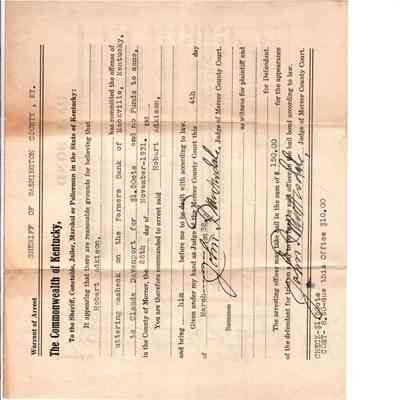 Warrant of Arrest
SHERIFF OF WASHINGTON COUNTY , KY.
The Commonwealth of Kentucky,
To the Sheriff, Constable, Jailer, Marshal or Policeman in the State of Kentucky:
It appearing that there are reasonable grounds for believing that
Hobert Addison,
has committed the offense of
uttering on the Farmers Bank of Kentucky,
to Claude Davenport for $1.50cts and no Funds to same,
in the County of Mercer, the 28th day of November-1931. 193
You are therefore commanded to arrest said Hobart Addison,
and bring him before me to be dealt with according to law.
Given under my hand as Judge of the Mercer County Court this 4th day
of March
Judge of Mercer County Court.
Summons as witness for plaintiff and
for Defendant.
The arresting officer may take bail in the sum of $ 150.00 for the appearance
of the defendant for by said officer bail bond according to law.
Judge of Mercer County Court.
COST- 8.50-Due this Office $10.00